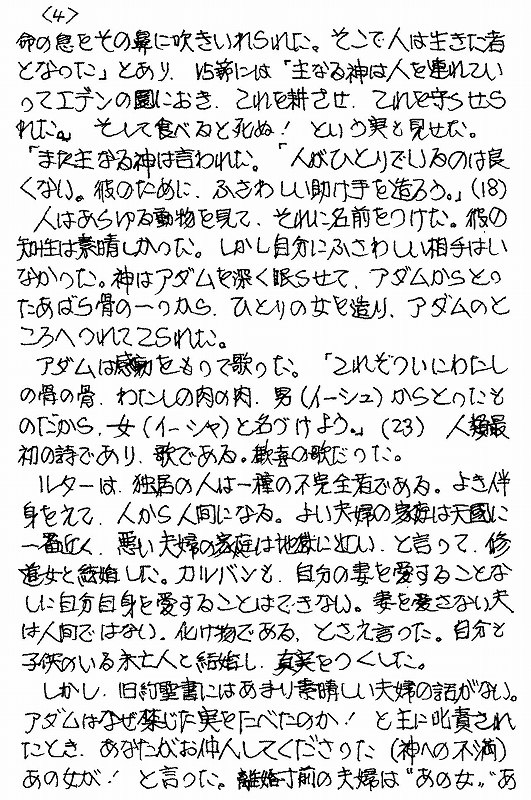 〈4〉
命の息をその鼻に吹きいれられた。そこで人は生きた者
となった」とあり、15節には「主なる神は人を連れてい
ってエデンの園におき、これを耕させ、これを守らせら
れた。」そして食べると死ぬ！という実も見せた。
「また主なる神は言われた。「人がひとりでいるのは良
くない。彼のために、ふさわしい助け手を造ろう。」(18)
人はあらゆる動物を見て、それに名前をつけた。彼の
知性は素晴しかった。しかし自分にふさわしい相手はい
なかった。神はアダムを深く眠らせて、アダムからとっ
たあばら骨の一つから、ひとりの女を造り、アダムのと
ころへつれてこられた。
アダムは感動をもって歌った。「これぞついにわたし
の骨の骨、わたしの肉の肉、男(イーシュ)からとったも
のだから、女(イーシャ)と名づけよう。」(23) 人類最
初の詩であり、歌である。歓喜の歌だった。
ルターは、独居の人は一種の不完全者である。よき伴
身をえて、人から人間になる。よい夫婦の家庭は天国に
一番近く、悪い夫婦の家庭は地獄に近い、と言って、修
道女と結婚した。カルバンも、自分の妻を愛することな
しに自分自身を愛することはできない。妻を愛さない夫
は人間ではない。化け物である、とさえ言った。自分も
子供のいる未亡人と結婚し、真実をつくした。
しかし、旧約聖書にはあまり素晴しい夫婦の話がない。
アダムはなぜ禁じた実をたべたのか！と主に叱責され
たとき、あなたがお仲人してくださった(神への不満)
あの女が！と言った。離婚寸前の夫婦は"あの女""あ